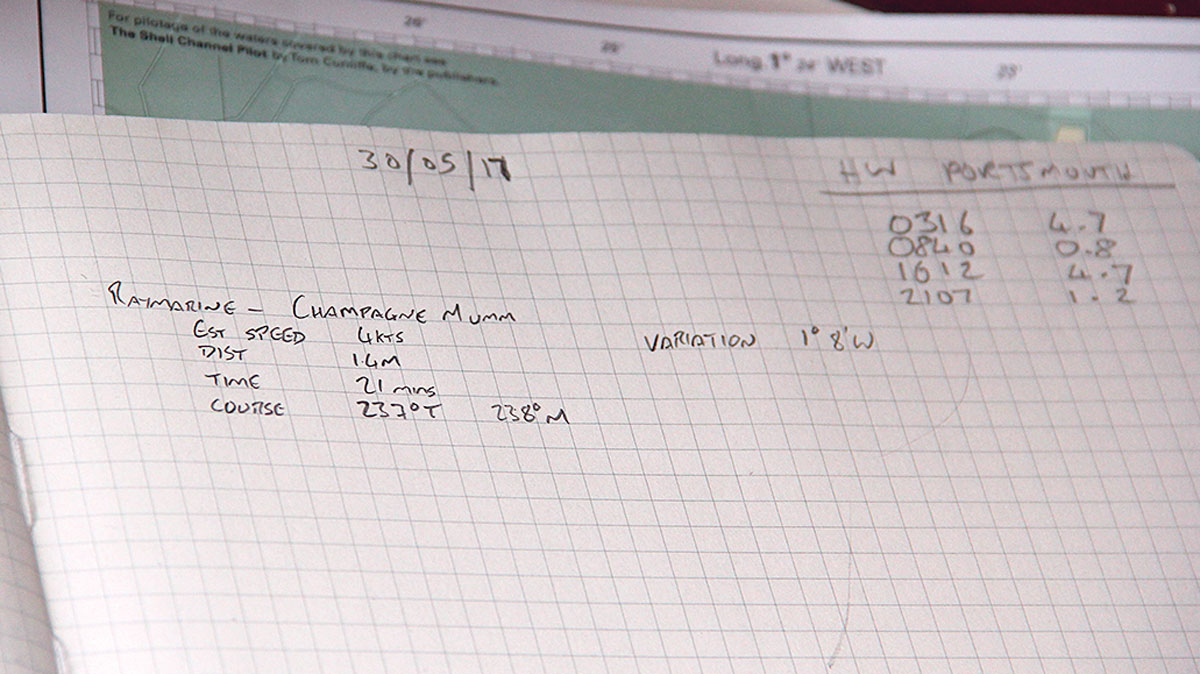 For pilotage of the waters covered by this chart see
The Shell Channel Pilot by Tom Cunliffe, by the publishers.
26'
Long. 1° WEST
30/05/17
HW PORTSMOUTH
0316 4.7
0840 0.8
1612 4.7
2107 1.2
RAYMARINE – CHAMPAGNE MUMM
EST SPEED 4KTS
VARIATION 1° 8'W
DIST 1.4M
TIME 21 mins
COURSE 237°T 238°M